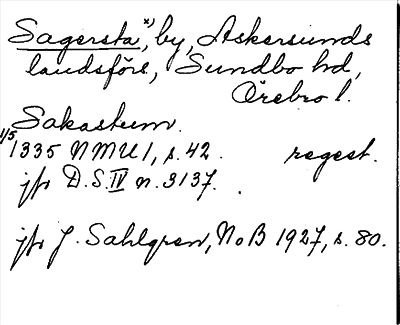 Sagersta*, by, Askersunds
landsförs, Sundbo hd,
Örebro l.
Sakastum.
1/5 1335 NMU 1, s. 42. regest.
jfr D.S. IV n. 3137.
jfr J. Sahlgren, NoB 1927, s. 80.